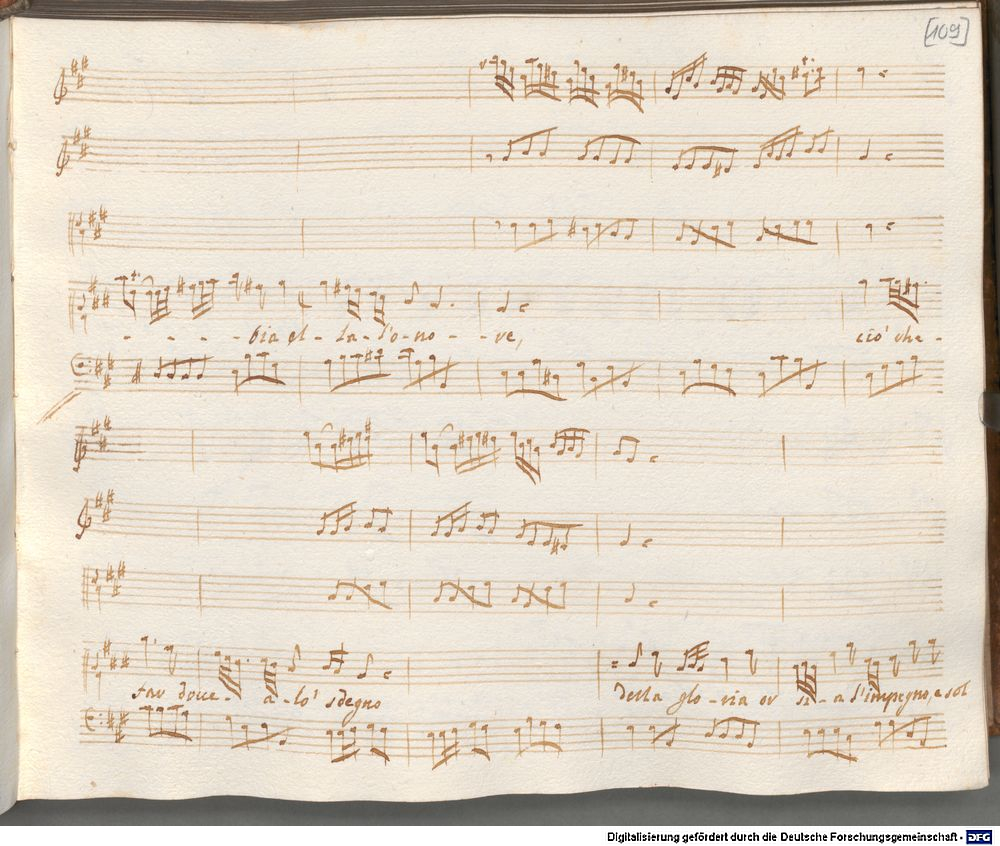 [109]
- - - - bia el-la l'o-no--re, ciò che-
far dove- a-lo' sdegno della glo-ria or si-a l'impegno, e sol
Digitalisierung gefördert durch die Deutsche Forschungsgemeinschaft - DFG